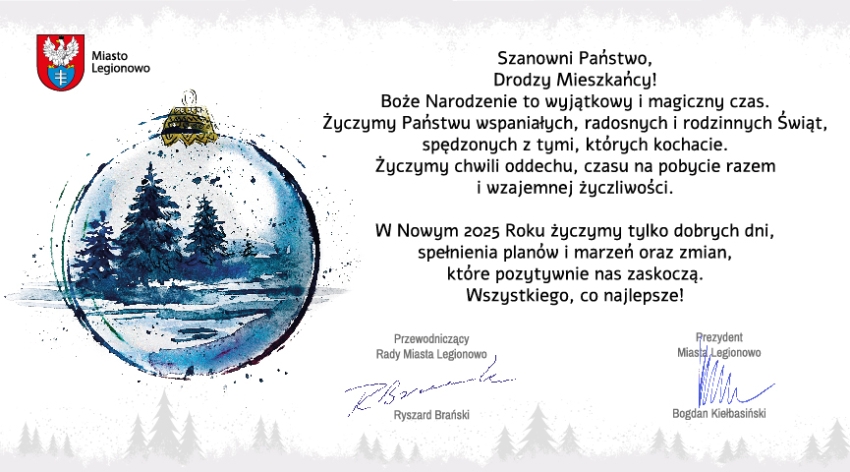 Miasto
Legionowo
Szanowni Państwo,
Drodzy Mieszkańcy!
Boże Narodzenie to wyjątkowy i magiczny czas.
Życzymy Państwu wspaniałych, radosnych i rodzinnych Świąt,
spędzonych z tymi, których kochacie.
Życzymy chwili oddechu, czasu na pobycie razem
i wzajemnej życzliwości.
W Nowym 2025 Roku życzymy tylko dobrych dni,
spełnienia planów i marzeń oraz zmian,
które pozytywnie nas zaskoczą.
Wszystkiego, co najlepsze!
Przewodniczący
Rady Miasta Legionowo
Ryszard Brański
Prezydent
Miasta Legionowo
Bogdan Kiełbasiński